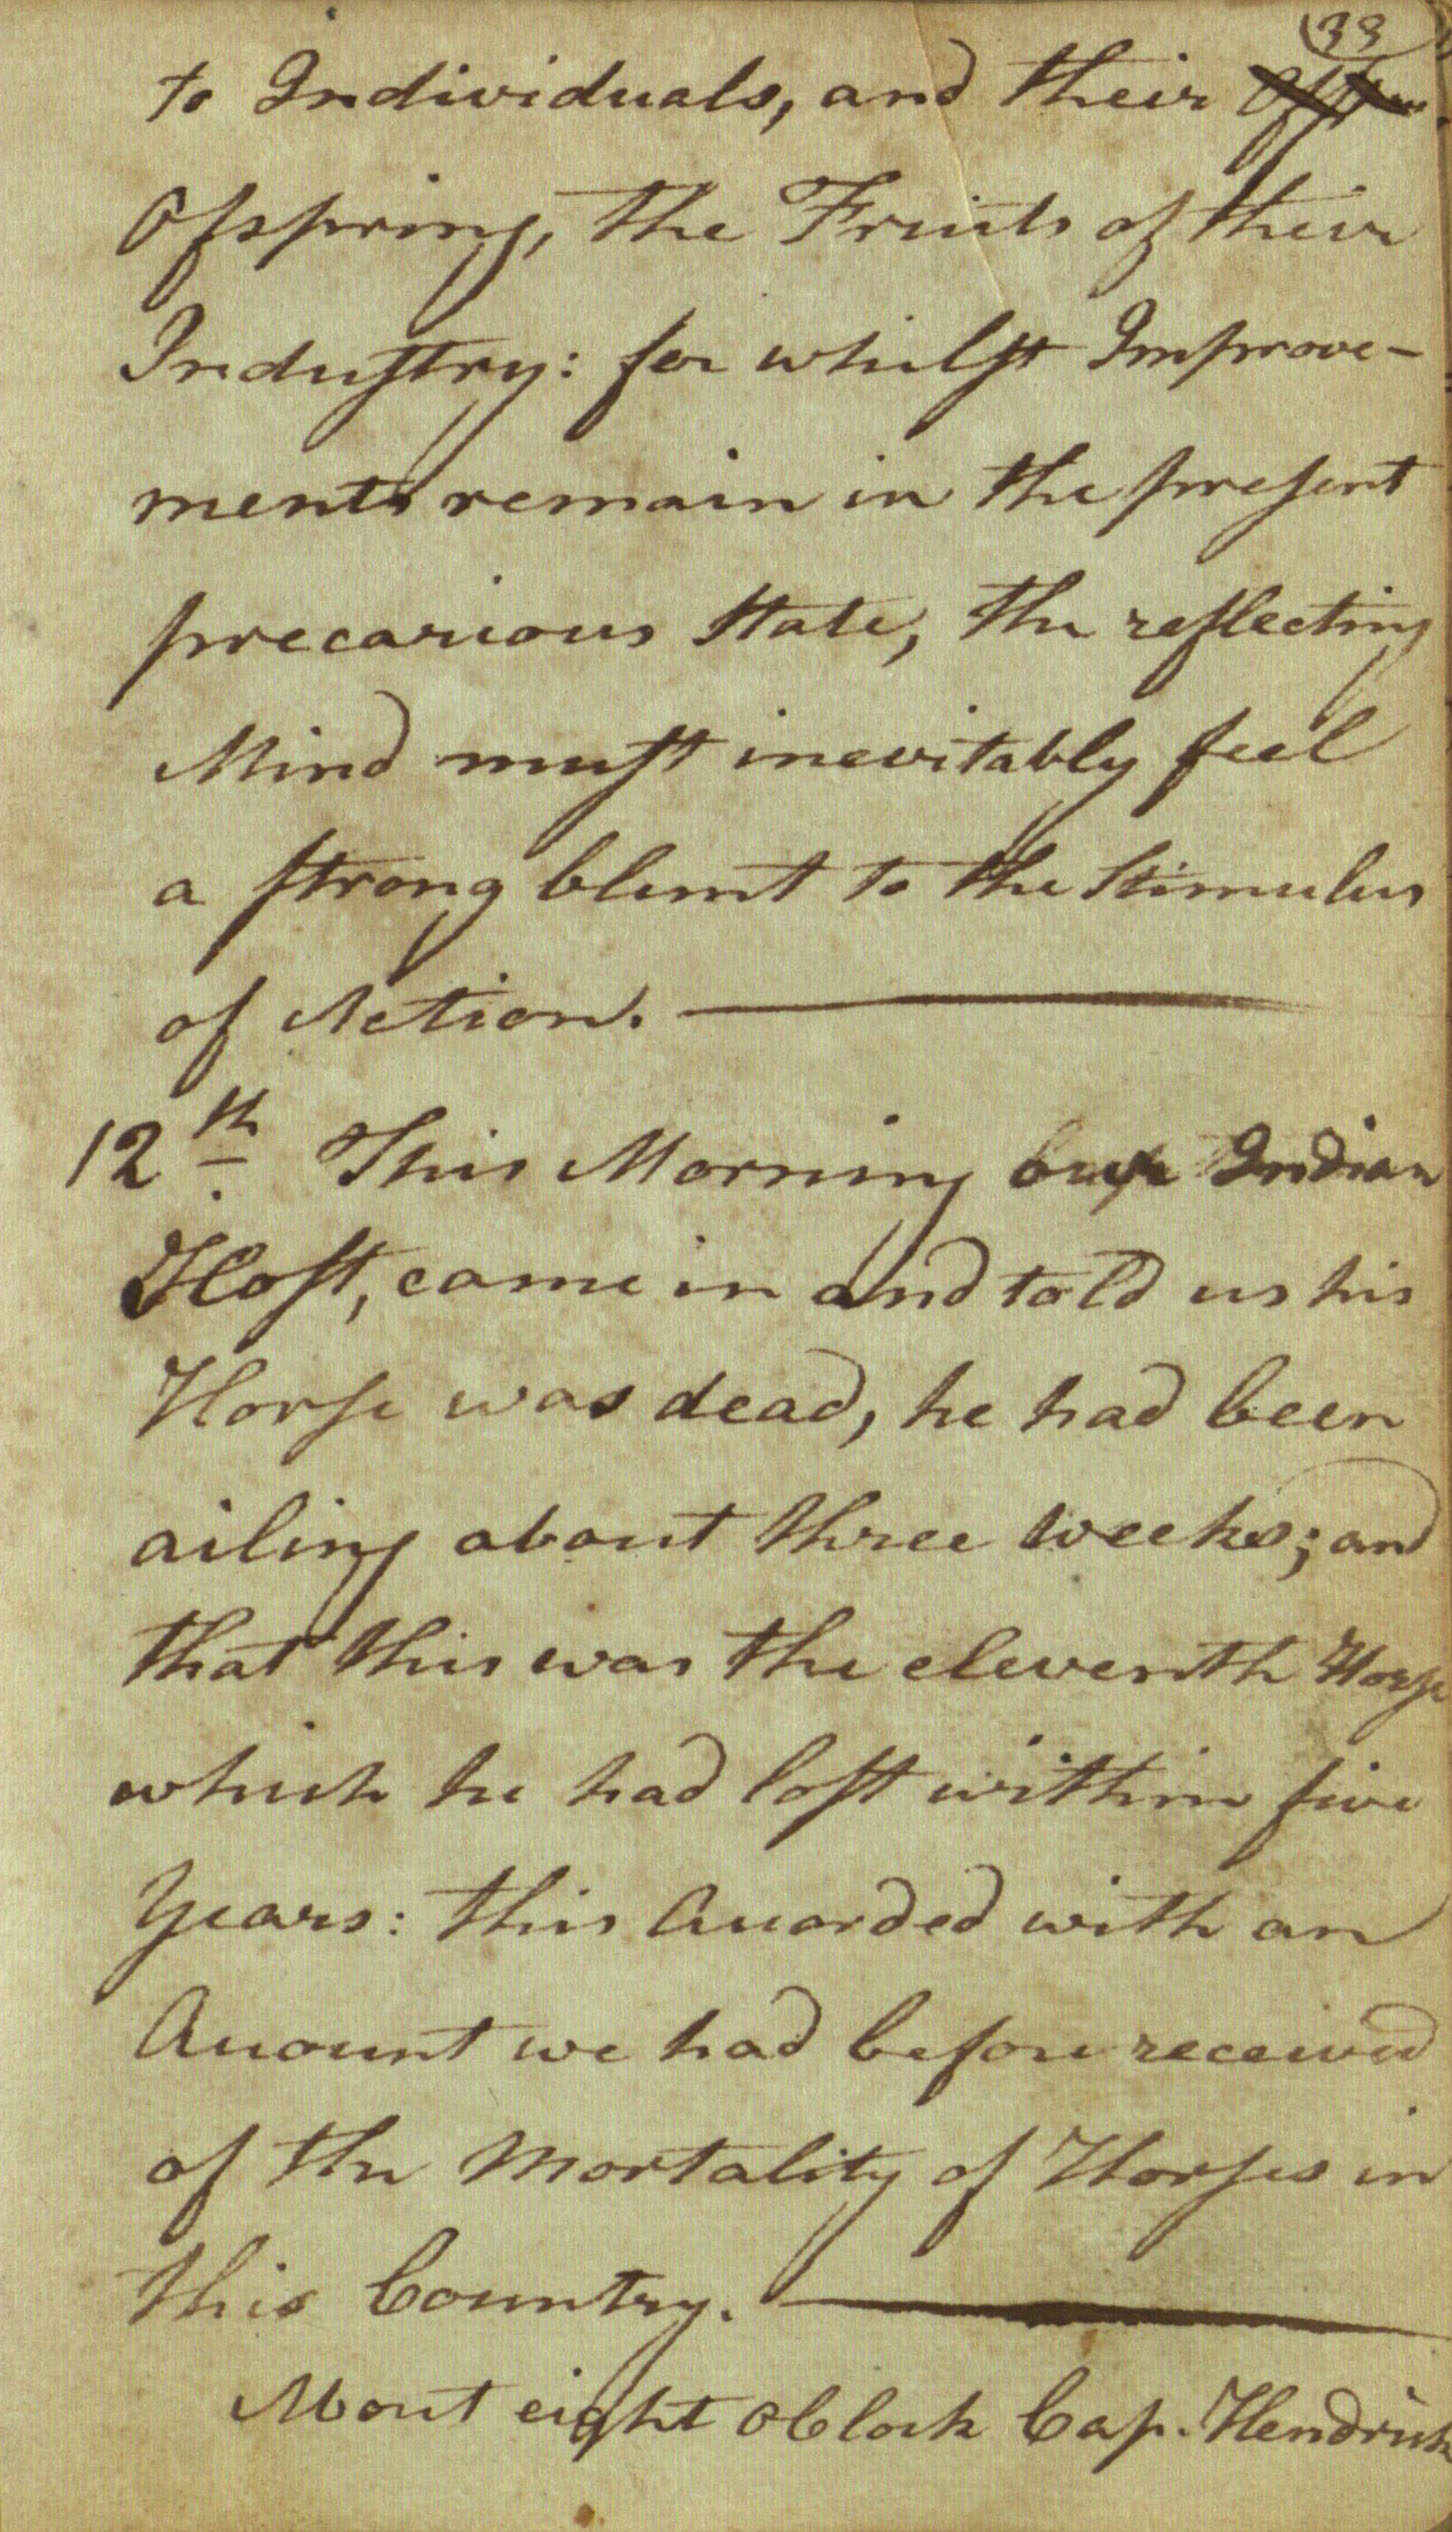 33
to Individuals, and their
Ofspring, the Fruits of their
Industry: for whilst Improve-
ments remain in the present
precarious State, the reflecting
Mind must inevitably feel
a strong blunt to the Stimulus
of Action.
12th This Morning our Indian
Host, came in and told us his
Horse was dead, he had been
ailing about three weeks; and
that this was the eleventh Horse
which he had lost within five
Years: this Accorded with an
Account we had before received
of the Mortality of Horses in
this Country.
About eight oClock Cap. Hendrick